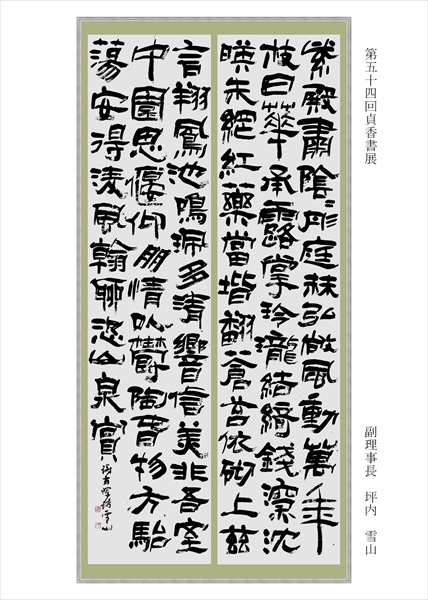 第五十四回貞香書展
副理事長 坪内 雪山
紫殿肅陰〻彤庭赫弘敞風動萬年
枝日華承露掌玲瓏結綺錢深沈
暎朱網紅藥當堦翻蒼苔依砌上茲
言翔鳳池鳴珮多清響信美非吾室
中園思偃仰朋情以鬱陶春物方駘
蕩安得凌風翰聊恣山泉賞
雪山